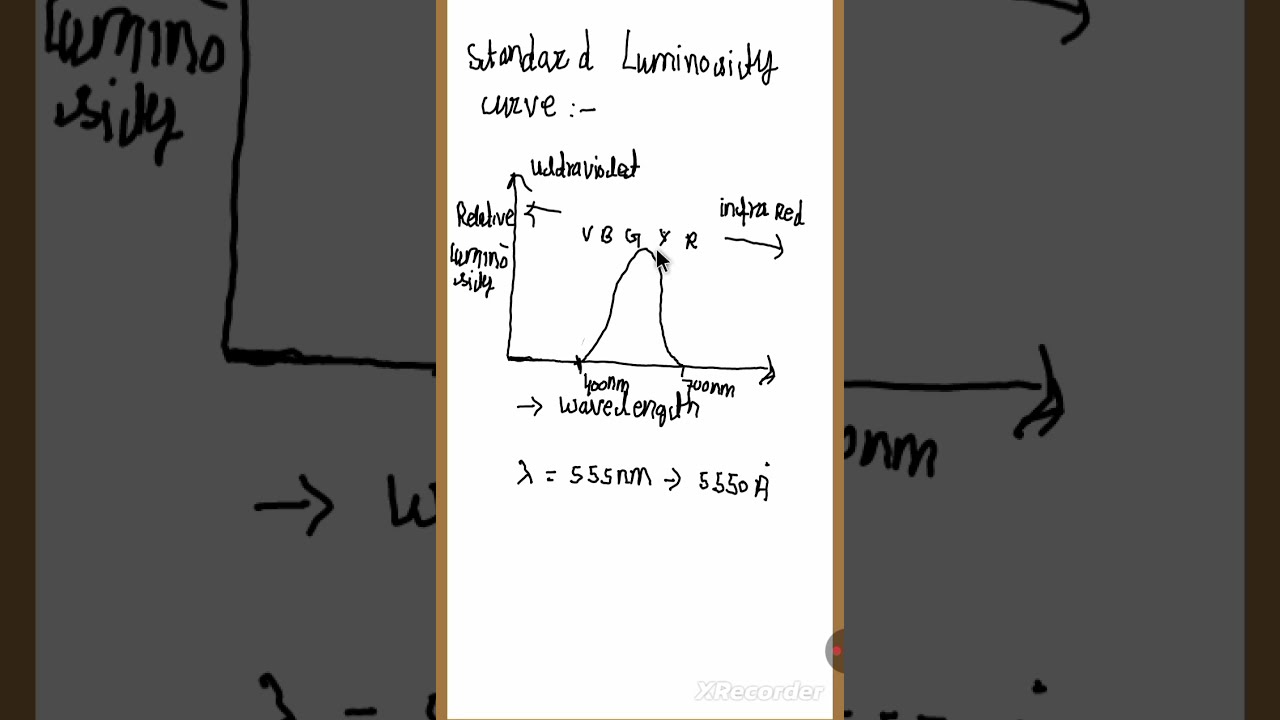 Standard Luminosity
curve :-
Uldraviolet
Relative
Lumino
sity
V B G Y R
infra Red
400nm
700nm
→ Wavelength
λ = 555nm → 5550 Å
XRecorder
Lumino
sity
0nm
→ W
λ =